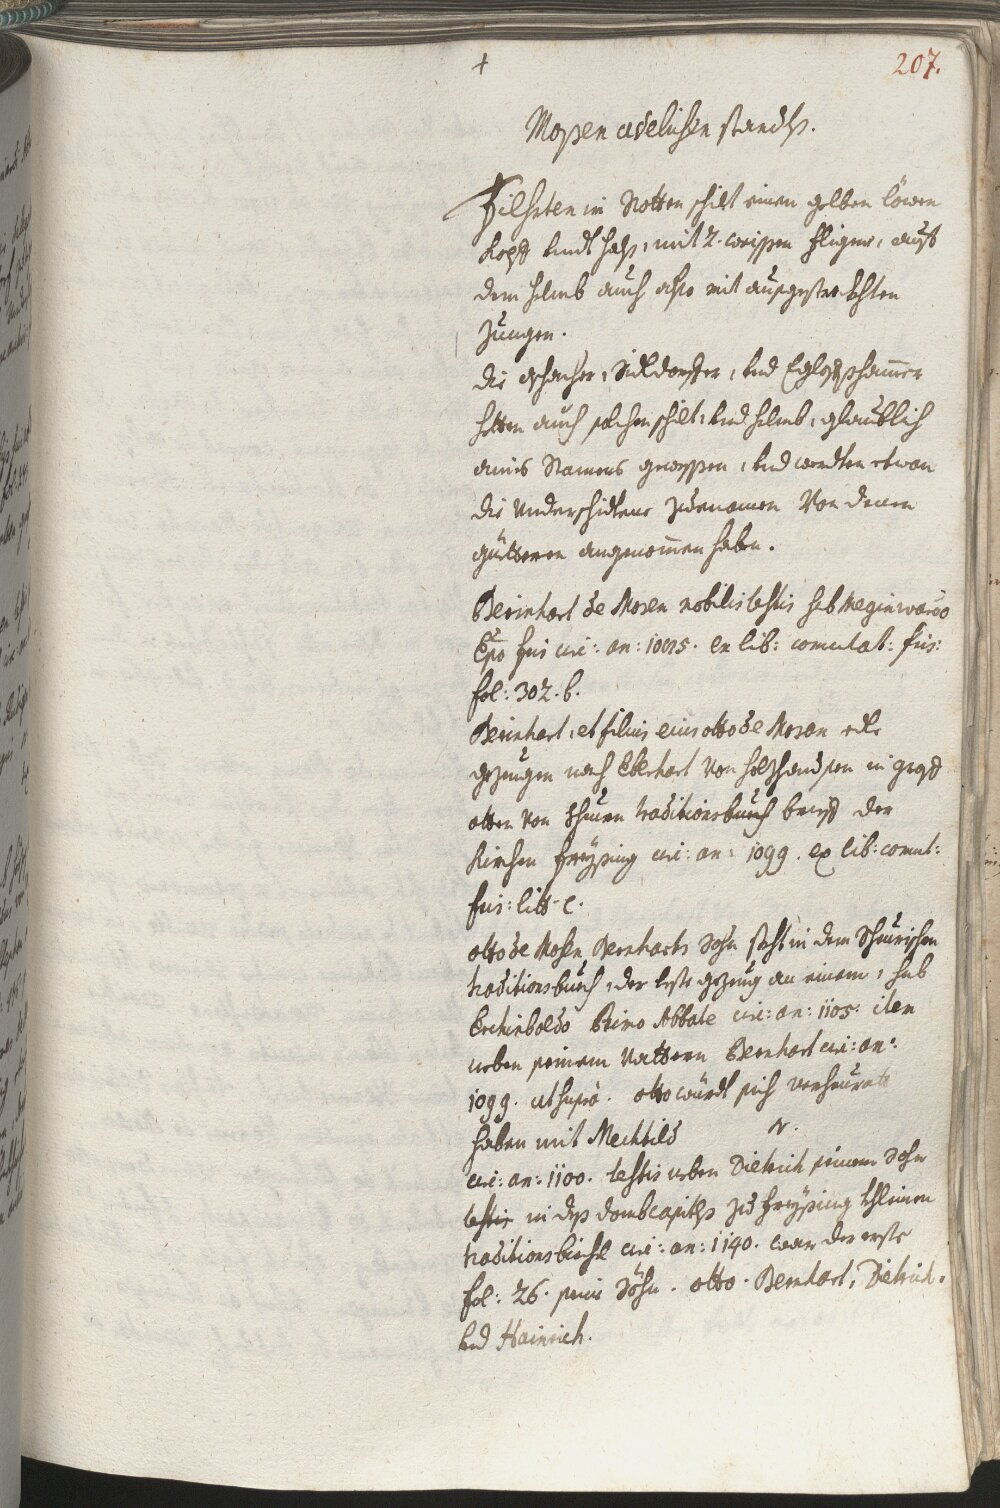 +
207.
Mosen adelichen standts.
Fiehrten in Rotten schilt einen gelben löwen
kopff undt halß, mit 2. weissen fligen, auf
dem helmb auch also mit außgestreckhten
Zungen.
die , Sildorffer, und Eglofshaimer
hetten auch solchen schilt, und helmb, glaublich
aines Namens gewessen, und werdten etwan
die Underschidtene Zuenamen Von denen
güetteren angenommen haben.
Bernhart de Mosen nobilis testis sub Meginwardo
Epo fris circ: an: ex lib: comutat: fris:
fol: 302. b.
Bernhart, et filius eius otto de Mosen edle
gezeugen nach Eberhart Von in graff
otten Von Scheurn traditionsbuech brieff der
Kirchen freysing circ: an: 1099. ex lib: comut:
fris: litt. C.
otto de Mosen Bernharts Sohn steht in dem Scheurischen
traditionsbuech, der leste gezeug an einem, sub
Erchinboldo Primo Abbate circ: an: 1105. item
neben seinem Vattern Bernhart circ: an:
1099. ut supra. otto würdt sich verheurat
haben mit Mechtild N.
circ: an: 1100. testis neben Dietrich seinem Sohn
testis in deß dombcapitls zu freysing khleinen
traditionsbiechl circ: an: 1140. war der erste
fol: 26. seine Söhn. otto. Bernhart, Dietrich.
und Hainrich.